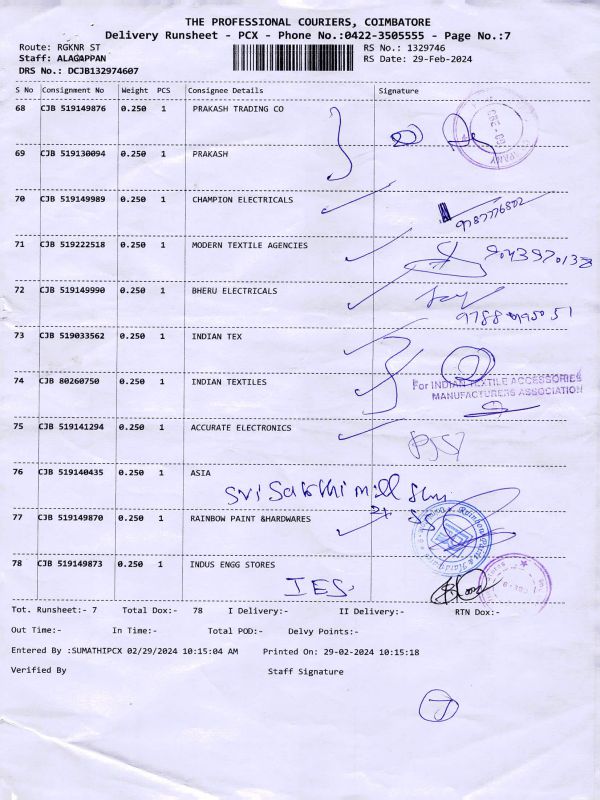 THE PROFESSIONAL COURIERS, COIMBATORE
Delivery Runsheet - PCX - Phone No.:0422-3505555 - Page No.:7
Route: RGKNR ST RS No.: 1329746
Staff: ALAGAPPAN RS Date: 29-Feb-2024
DRS No.: DCJB132974607
S No Consignment No Weight PCS Consignee Details Signature
68 CJB 519149876 0.250 1 PRAKASH TRADING CO
69 CJB 519130094 0.250 1 PRAKASH
70 CJB 519149989 0.250 1 CHAMPION ELECTRICALS
9787776802
71 CJB 519222518 0.250 1 MODERN TEXTILE AGENCIES
9043970138
72 CJB 519149990 0.250 1 BHERU ELECTRICALS
73 CJB 519033562 0.250 1 INDIAN TEX
74 CJB 80260750 0.250 1 INDIAN TEXTILES
For INDIAN TEXTILE ACCESSORIES
MANUFACTURERS ASSOCIATION
75 CJB 519141294 0.250 1 ACCURATE ELECTRONICS
76 CJB 519140435 0.250 1 ASIA
Sri Sakthi mill
77 CJB 519149870 0.250 1 RAINBOW PAINT &HARDWARES
78 CJB 519149873 0.250 1 INDUS ENGG STORES
IES
Tot. Runsheet:- 7 Total Dox:- 78 I Delivery:- II Delivery:- RTN Dox:-
Out Time:- In Time:- Total POD:- Delvy Points:-
Entered By :SUMATHIPCX 02/29/2024 10:15:04 AM Printed On: 29-02-2024 10:15:18
Verified By Staff Signature